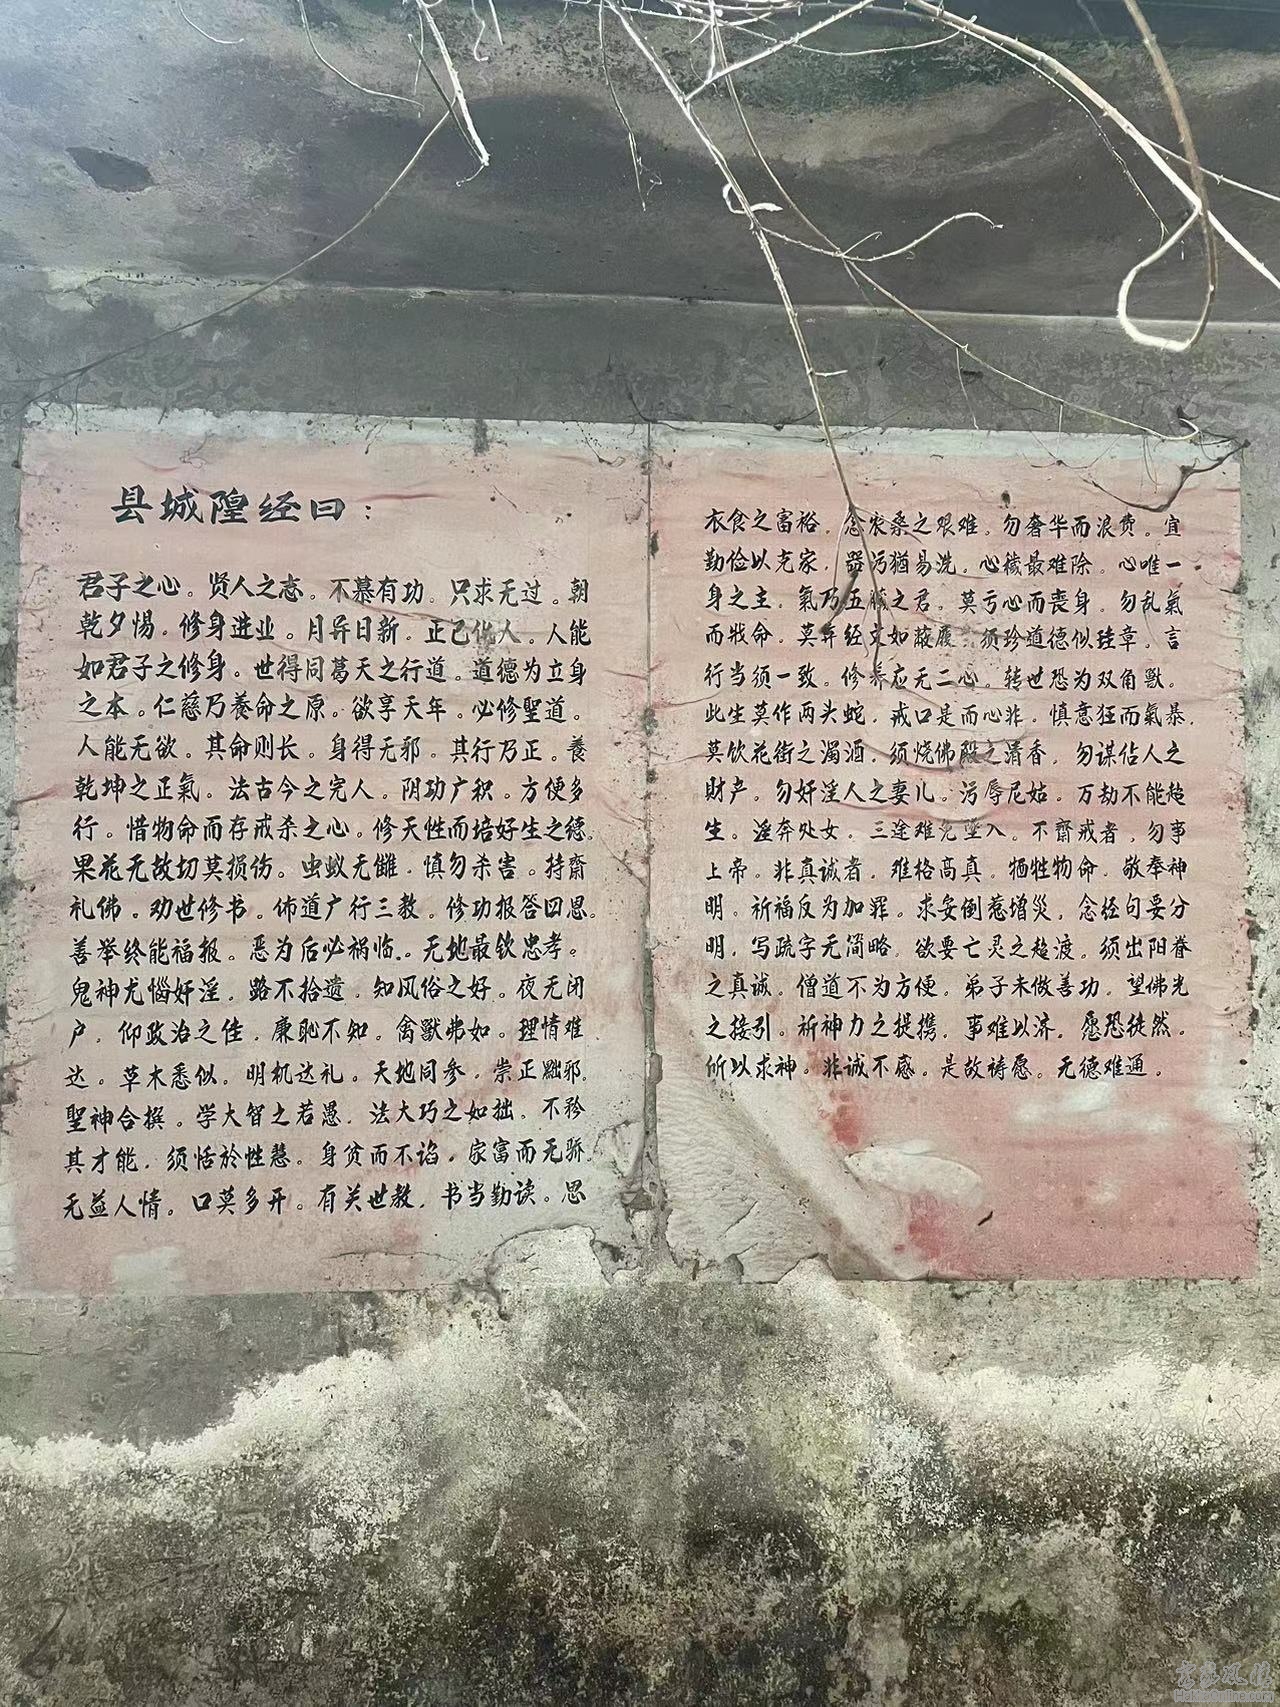 县城隍经曰：
君子之心。贤人之志。不慕有功。只求无过。朝
乾夕惕。修身进业。月异日新。正己化人。人能
如君子之修身。世得同葛天之行道。道德为立身
之本。仁慈乃養命之原。欲享天年。必修聖道。
人能无欲。其命则长。身得无邪。其行乃正。養
乾坤之正氣。法古今之完人。阴功广积。方便多
行。惜物命而存戒杀之心。修天性而培好生之德。
果花无故切莫损伤。虫蚁无雠，慎勿杀害。持齋
礼佛。劝世修书。佈道广行三教。修功报答四恩。
善举终能福报。恶为后必祸临。无地最钦忠孝。
鬼神尤惱奸淫。路不拾遗，知风俗之好。夜无闭
户，仰政治之佳，廉恥不知。禽獸弗如。理情难
达。草木悉似。明机达礼。天地同参，崇正黜邪。
聖神合撰。学大智之若愚，法大巧之如拙，不矜
其才能，须恬於性慧。身贫而不谄，家富而无骄。
无益人情。口莫多开。有关世教，书当勤读。思
衣食之富裕，念农桑之艰难。勿奢华而浪费。宜
勤俭以克家，器污猶易洗，心穢最难除。心唯一
身之主，氣乃五臟之君。莫亏心而丧身。勿乱氣
而戕命，莫弃经文如蔽履。须珍道德似珪章。言
行当须一致。修养应无二心。转世恐为双角獸。
此生莫作两头蛇，戒口是而心非，慎意狂而氣暴，
莫饮花街之濁酒，须烧佛殿之清香，勿谋佔人之
财产。勿奸淫人之妻儿。污辱尼姑。万劫不能超
生。淫奔处女，三途难免墜入。不齋戒者，勿事
上帝。非真诚者，难格高真。牺牲物命，敬奉神
明。祈福反为加罪。求安倒惹增災，念经句要分
明，写疏字无简略，欲要亡灵之超渡。须出阳眷
之真诚。僧道不为方便。弟子未做善功，望佛光
之接引。祈神力之提携，事难以济，愿恐徒然。
所以求神。非诚不感。是故祷愿。无德难通。